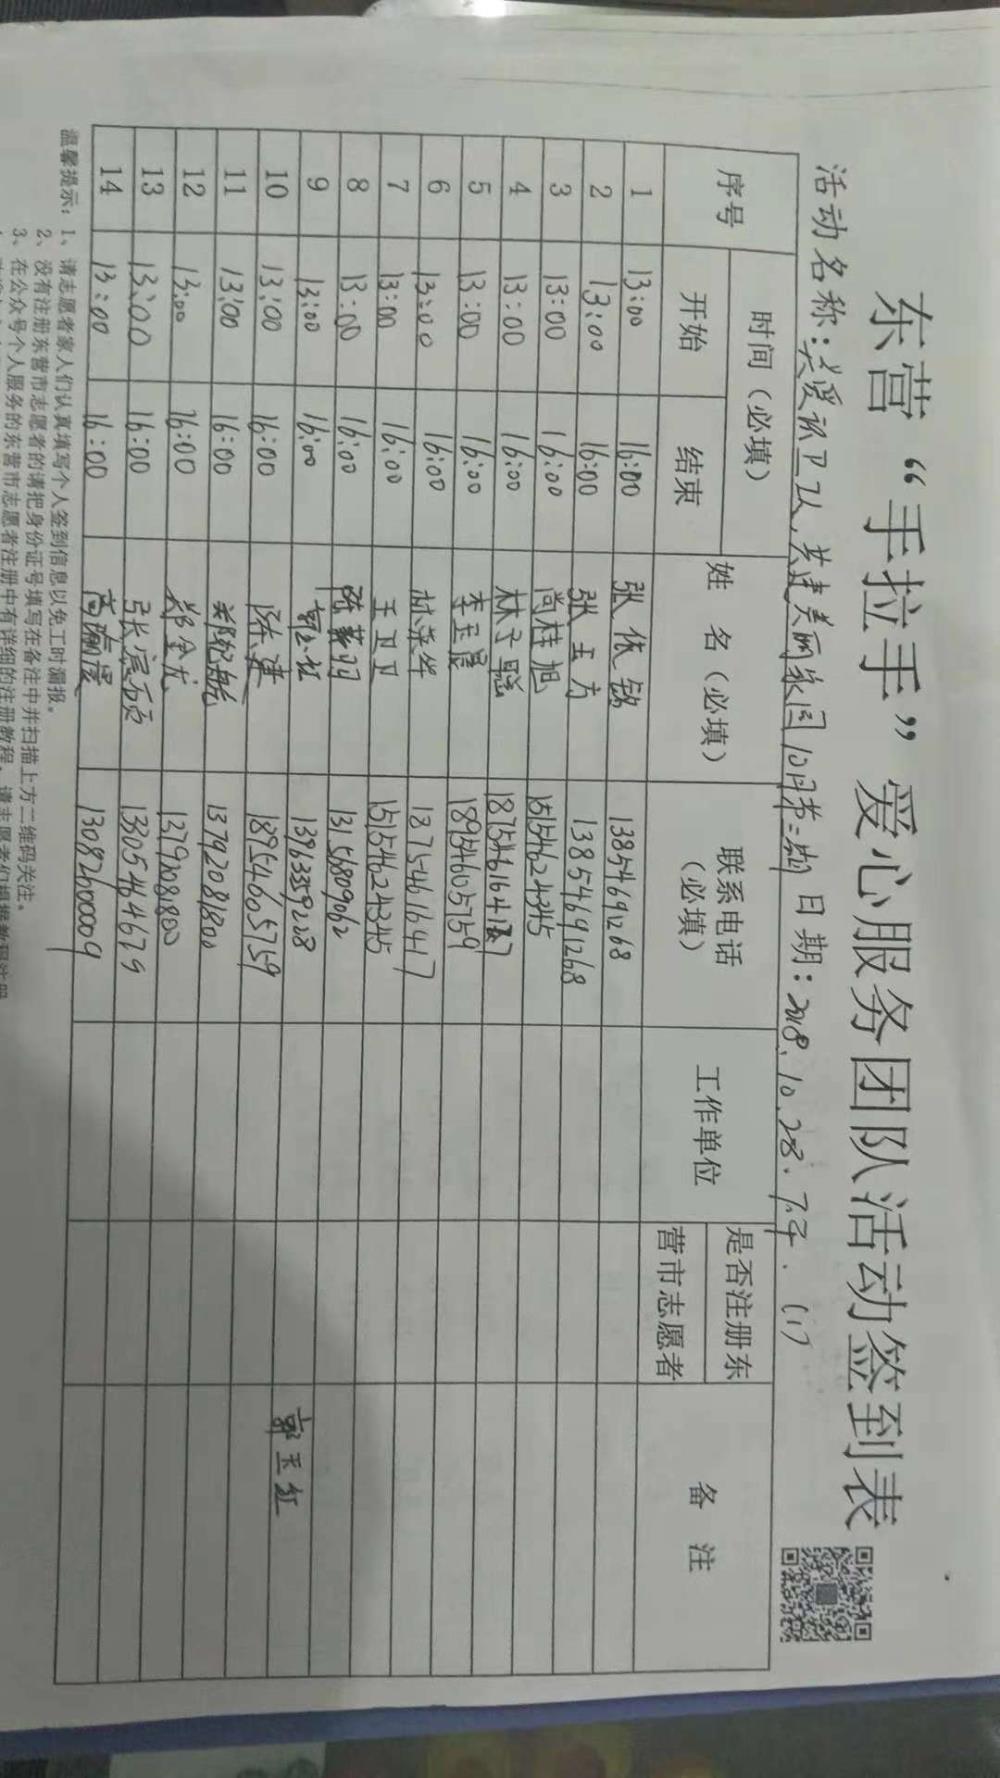 东营“手拉手”爱心服务团队活动签到表
活动名称：关爱环卫工人,共建美丽家园10月第二期 日期：2018.10.28.下午.(1)
序号 时间（必填） 姓 名（必填） 联系电话（必填） 工作单位 是否注册东营市志愿者 备 注
开始 结束
1 13:00 16:00 张依铭 13854691268
2 13:00 16:00 张玉方 13854691268
3 13:00 16:00 尚桂旭 15154624345
4 13:00 16:00 林子 187546164
5 13:00 16:00 李玉晨 18954605759
6 13:00 16:00 林荣华 18754616417
7 13:00 16:00 王卫卫 15154624345
8 13:00 16:00 陈 羽 13156809062
9 13:00 16:00 郭玉红 13963359228 郭玉红
10 13:00 16:00 陈建 18954605759
11 13:00 16:00 13792081800
12 13:00 16:00 郑金龙 13792081800
13 13:00 16:00 张 13305464679
14 13:00 16:00 高 13082600009
温馨提示：1、请志愿者家人们认真填写个人签到信息以免工时漏报。
2、没有注册东营市志愿者的请把身份证号填写在备注中并扫描上方二维码关注。
3、在公众号个人服务的东营市志愿者注册中有详细的注册教程，请志愿者们根据教程注册